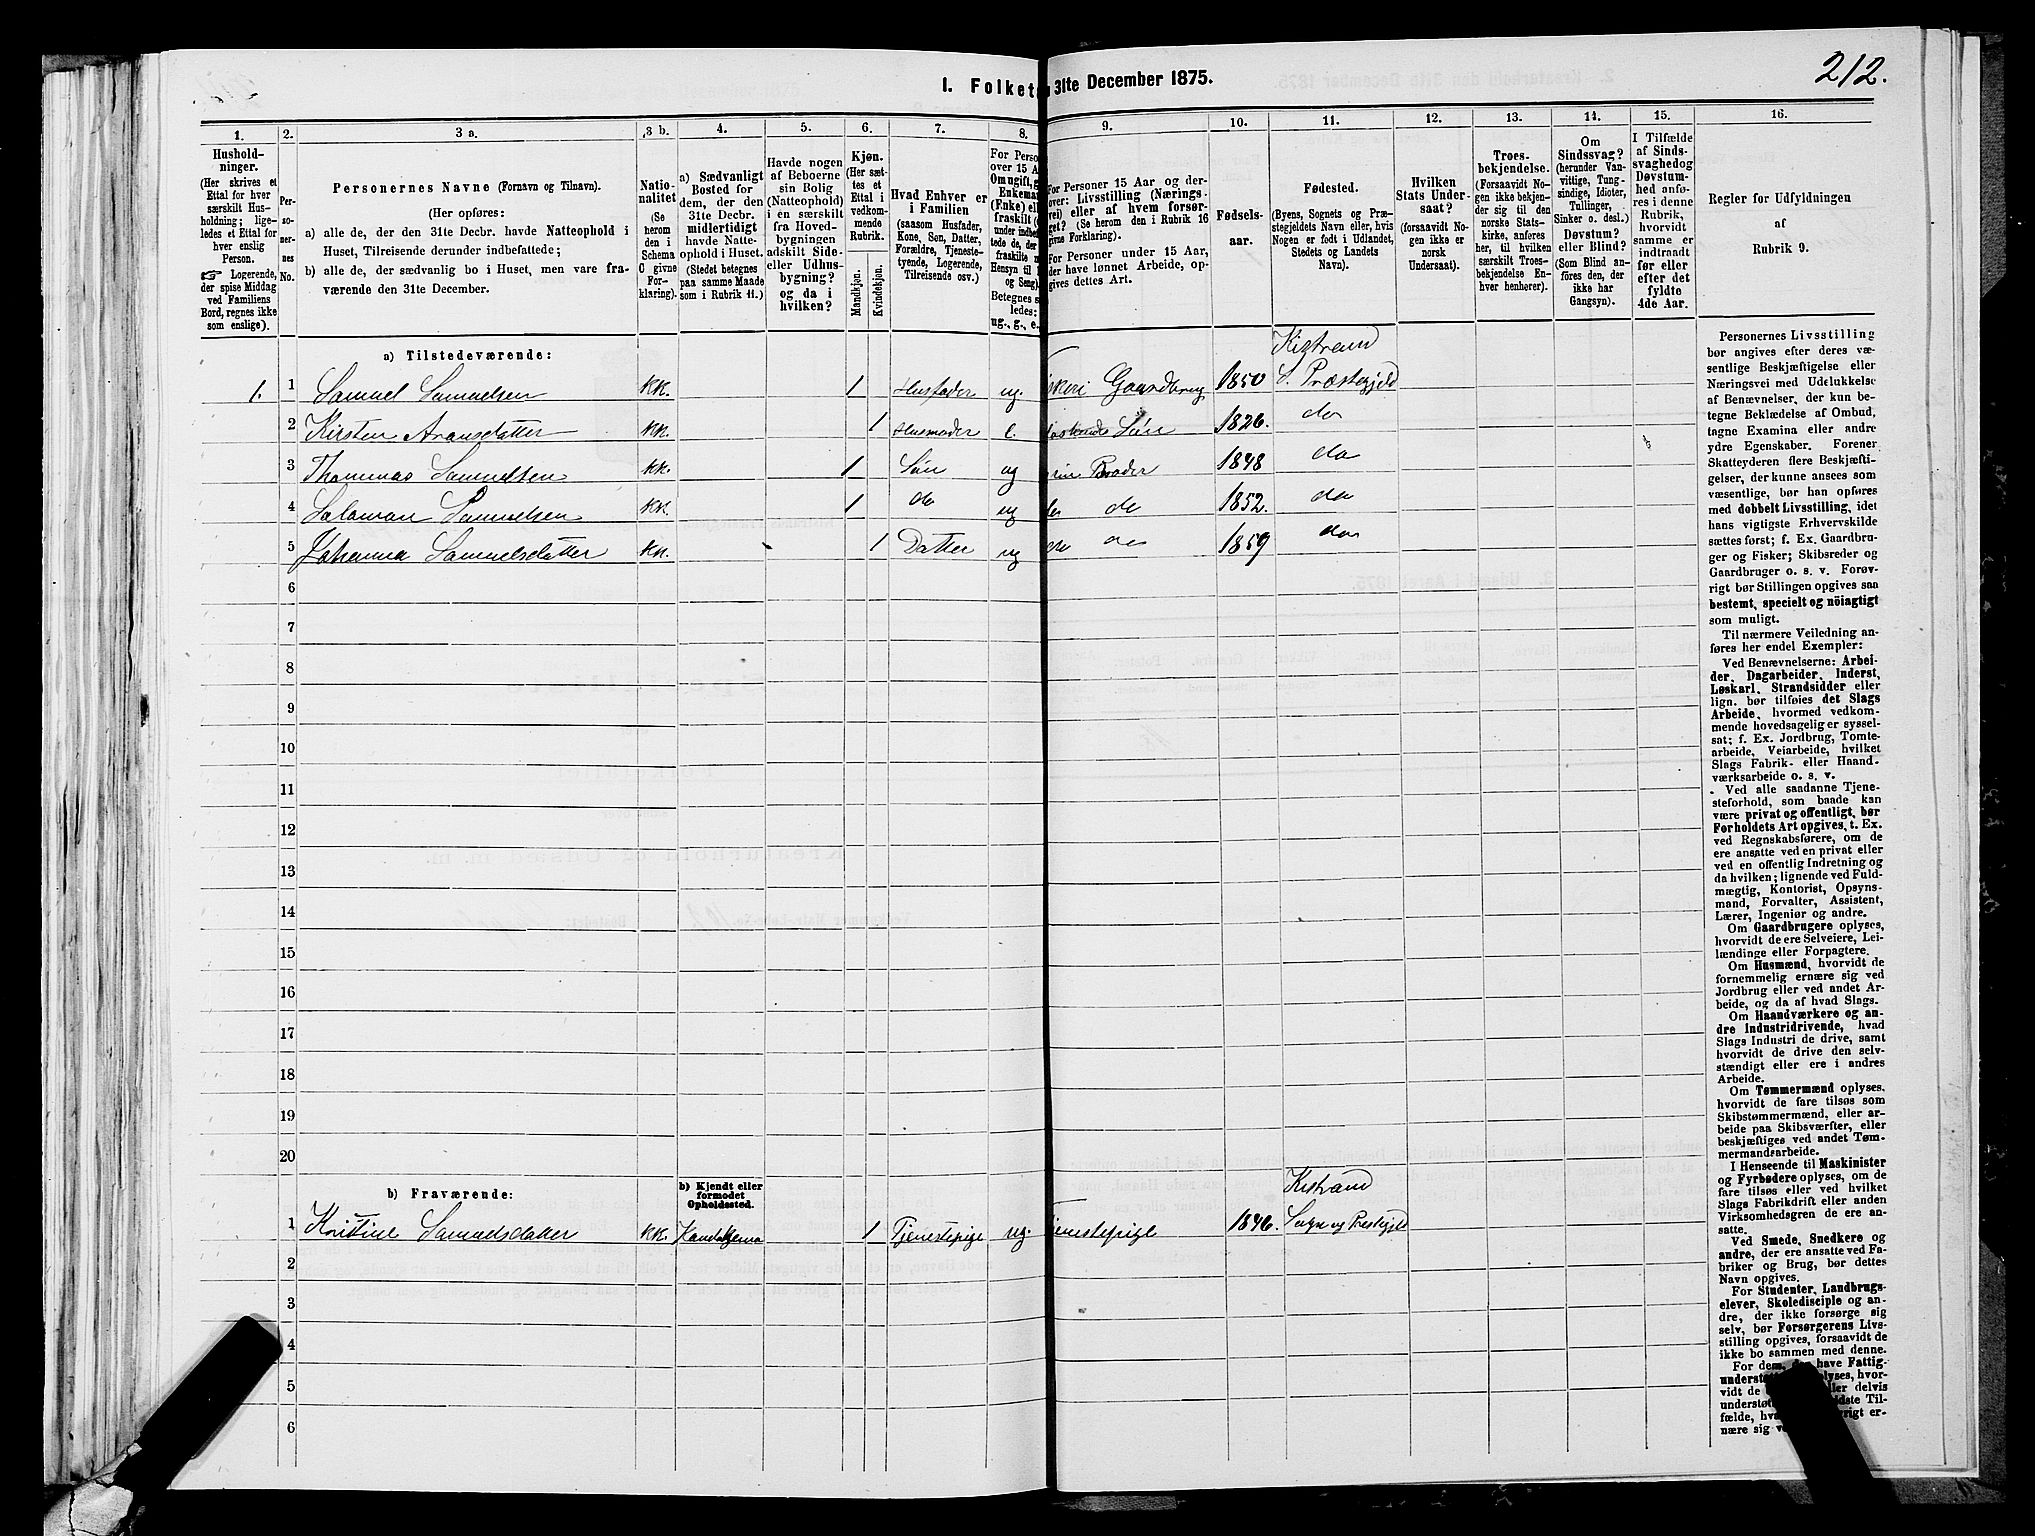 212.
1. Folket 31te December 1875.
1. 2. 3 a. 3 b. 4. 5. 6. 7. 8. 9. 10. 11. 12. 13. 14. 15. 16.
Hushold-
ninger.
(Her skrives et
Ettal for hver
særskilt Hus-
holdning; lige-
ledes et Ettal for
hver enslig
Person.
☞ Logerende,
der spise Middag
ved Familiens
Bord, regnes ikke
som enslige).
Per-
so-
ner-
nes
No.
Personernes Navne (Fornavn og Tilnavn).
(Her opføres:
a) alle de, der den 31te Decbr. havde Natteophold i
Huset, Tilreisende derunder indbefattede;
b) alle de, der sædvanlig bo i Huset, men vare fra-
værende den 31te December.
Natio-
nalitet
(Se
herom
den i
Schema
C givne
For-
klaring).
a) Sædvanligt
Bosted for
dem, der den
31te Decbr.
midlertidigt
havde Natte-
ophold i Huset.
(Stedet betegnes
paa samme Maade
som i Rubrik 11.)
Havde nogen
af Beboerne
sin Bolig
(Natteophold)
i en særskilt
fra Hoved-
bygningen
adskilt Side-
eller Udhus-
bygning?
og da i
hvilken?
Kjøn.
(Her sæt-
tes et
Ettal i
vedkom-
mende
Rubrik.
Mandkjøn.
Kvindekjøn.
Hvad Enhver er
i Familien
(saasom Husfader,
Kone, Søn, Datter,
Forældre, Tjeneste-
tyende, Logerende,
Tilreisende osv.)
For Perso
over 15 A
Omugift, g
Enkema
(Enke) ell
fraskilt (
under indbef
tede de, der
fraskilte m
Hensyn til B
og Seng).
Betegnes s
ledes:
ug., g., e.
For Personer 15 Aar og der-
over: Livsstilling (Nærings-
vei) eller af hvem forsør-
get? (Se herom den i Rubrik 16
givne Forklaring).
For Personer under 15 Aar,
der have lønnet Arbeide, op-
gives dettes Art.
Fødsels-
aar.
Fødested.
(Byens, Sognets og Præ-
stegjeldets Navn eller, hvis
Nogen er født i Udlandet,
Stedets og Landets
Navn).
Hvilken
Stats Under-
saat?
(forsaavidt No-
gen ikke er
norsk
Undersaat).
Troes-
bekjendelse.
(Forsaavidt No-
gen ikke bekjen-
der sig til den
norske Stats-
kirke, anføres
her, til hvilken
særskilt Troes-
bekjendelse En-
hver henhører).
Om
Sindssvag?
(herunder Van-
vittige, Tung-
sindige, Idioter,
Tullinger,
Sinker o. desl.)
Døvstum?
eller Blind?
(Som Blind an-
føres den, der
ikke har
Gangsyn).
I Tilfælde
af Sinds-
svaghed og
Døvstum-
hed anfø-
res i denne
Rubrik,
hvorvidt
samme er
indtraadt
før eller
efter det
fyldte
4de Aar.
Regler for Udfyldningen
af
Rubrik 9.
a) Tilstedeværende:
Kistrand
1. 1 Samuel Samuelsen KK. 1 Husfader ug. iskeri Gaardbrug 1850 S. Præstegjeld
2 Kirsten Aransdatter KK. 1 Husmoder e. Søn 1826. do
3 Thommas Samuelsen KK. 1 Søn ug Broder 1848 do
4 Salamon Samuelsen KK. 1 do ug do do 1852. do
5 Johanna Samuelsdatter KK. 1 Datter ug do do 1859 do
6
7
8
9
10
11
12
13
14
15
16
17
18
19
20
b) Fraværende:
b) Kjendt eller
formodet
Opholdssted.
Kistrand
1 Kristine Samuelsdatter KK. 1 Tjenestepige ug. jenestepige 1846. Sogn og Prestgjeld
2
3
4
5
6
Personernes Livsstilling
bør angives efter deres væ-
sentlige Beskjæftigelse eller
Næringsvei med Udelukkelse
af Benævnelser, der kun be-
tegne Beklædelse af Ombud,
tagne Examina eller andre
ydre Egenskaber. Forener
Skatteyderen flere Beskjæfti-
gelser, der kunne ansees som
væsentlige, bør han opføres
med dobbelt Livsstilling, idet
hans vigtigste Erhvervskilde
sættes først; f. Ex. Gaardbru-
ger og Fisker; Skibsreder og
Gaardbruger o. s. v. Forøv-
rigt bør Stillingen opgives saa
bestemt, specielt og nöiagtigt
som muligt.
Til nærmere Veiledning an-
føres her endel Exempler:
Ved Benævnelserne: Arbei-
der, Dagarbeider, Inderst,
Løskarl, Strandsidder eller
lign. bør tilføies det Slags
Arbeide, hvormed vedkom-
mende hovedsagelig er syssel-
sat; f. Ex. Jordbrug, Tomte-
arbeide, Veiarbeide, hvilket
Slags Fabrik- eller Haand-
værksarbeide o. s. v.
Ved alle saadanne Tjene-
steforhold, som baade kan
være privat og offentligt, bør
Forholdets Art opgives, t. Ex.
ved Regnskabsførere, om de
ere ansatte ved en privat eller
ved en offentlig Indretning og
da hvilken; lignende ved Fuld-
mægtig, Kontorist, Opsyns-
mand, Forvalter, Assistent,
Lærer, Ingeniør og andre.
Om Gaardbrugere oplyses,
hvorvidt de ere Selveiere, Lei-
lændinge eller Forpagtere.
Om Husmænd, hvorvidt de
fornemmelig ernære sig ved
Jordbrug eller ved andet Ar-
beide, og da af hvad Slags.
Om Haandværkere og an-
dre Industridrivende, hvad
Slags Industri de drive, samt
hvorvidt de drive den selv-
stændigt eller ere i andres
Arbeide.
Om Tømmermænd oplyses,
hvorvidt de fare tilsøs som
Skibstømmermænd, eller ar-
beide paa Skibsværfter, eller
beskjæftiges ved andet Tøm-
mermandsarbeide.
I Henseende til Maskinister
og Fyrbødere oplyses, om de
fare tilsøs eller ved hvilket
Slags Fabrikdrift eller anden
Virksomhedsgren de ere an-
satte.
Ved Smede, Snedkere og
andre, der ere ansatte ved Fa-
briker og Brug, bør dettes
Navn opgives.
For Studenter, Landbrugs-
elever, Skoledisciple og an-
dre, der ikke forsørge sig
selv, bør Forsørgerens Livs-
stilling opgives, forsaavidt de
ikke bo sammen med denne.
For dem, der have Fattig-